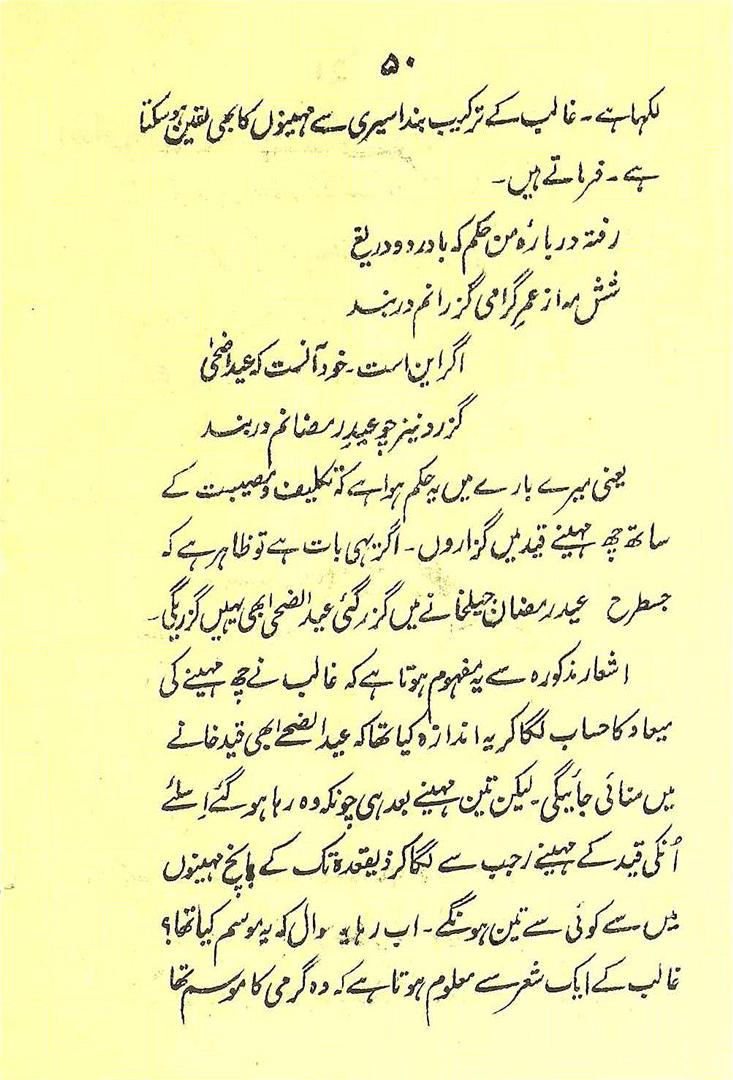 ۵۰
لکھا ہے ۔ غالب کے ترکیب بند اسیری سے مہینوں کا بھی یقین ہو سکتا
ہے ۔ فرماتے ہیں ۔
رفتہ دربارۂ من حکم کہ با درد و دریغ
شش مہ از عمرِ گرامی گزرانم در بند
اگر این است ۔ خود آنست کہ عید اضحیٰ
گزرد نیز چو عیدِ رمضانم در بند
یعنی میرے بارے میں یہ حکم ہوا ہے کہ تکلیف و مصیبت کے
ساتھ چھ مہینے قید میں گزاروں ۔ اگر یہی بات ہے تو ظاہر ہے کہ
جسطرح عید رمضان جیلخانے میں گزر گئی عید الضحیٰ بھی یہیں گزریگی ۔
اشعار مذکورہ سے یہ مفہوم ہوتا ہے کہ غالب نے چھ مہینے کی
میعاد کا حساب لگا کر یہ اندازہ کیا تھا کہ عید الضحےٰ بھی قید خانے
میں منائی جائیگی ۔ لیکن تین مہینے بعد ہی چونکہ وہ رہا ہو گئے اِسلئے
اُنکی قید کے مہینے رجب سے لگا کر ذیقعدۃ تک کے پانچ مہینوں
میں سے کوئی سے تین ہونگے ۔ اب رہا یہ سوال کہ یہ موسم کیا تھا ؟
غالب کے ایک شعر سے معلوم ہوتا ہے کہ وہ گرمی کا موسم تھا